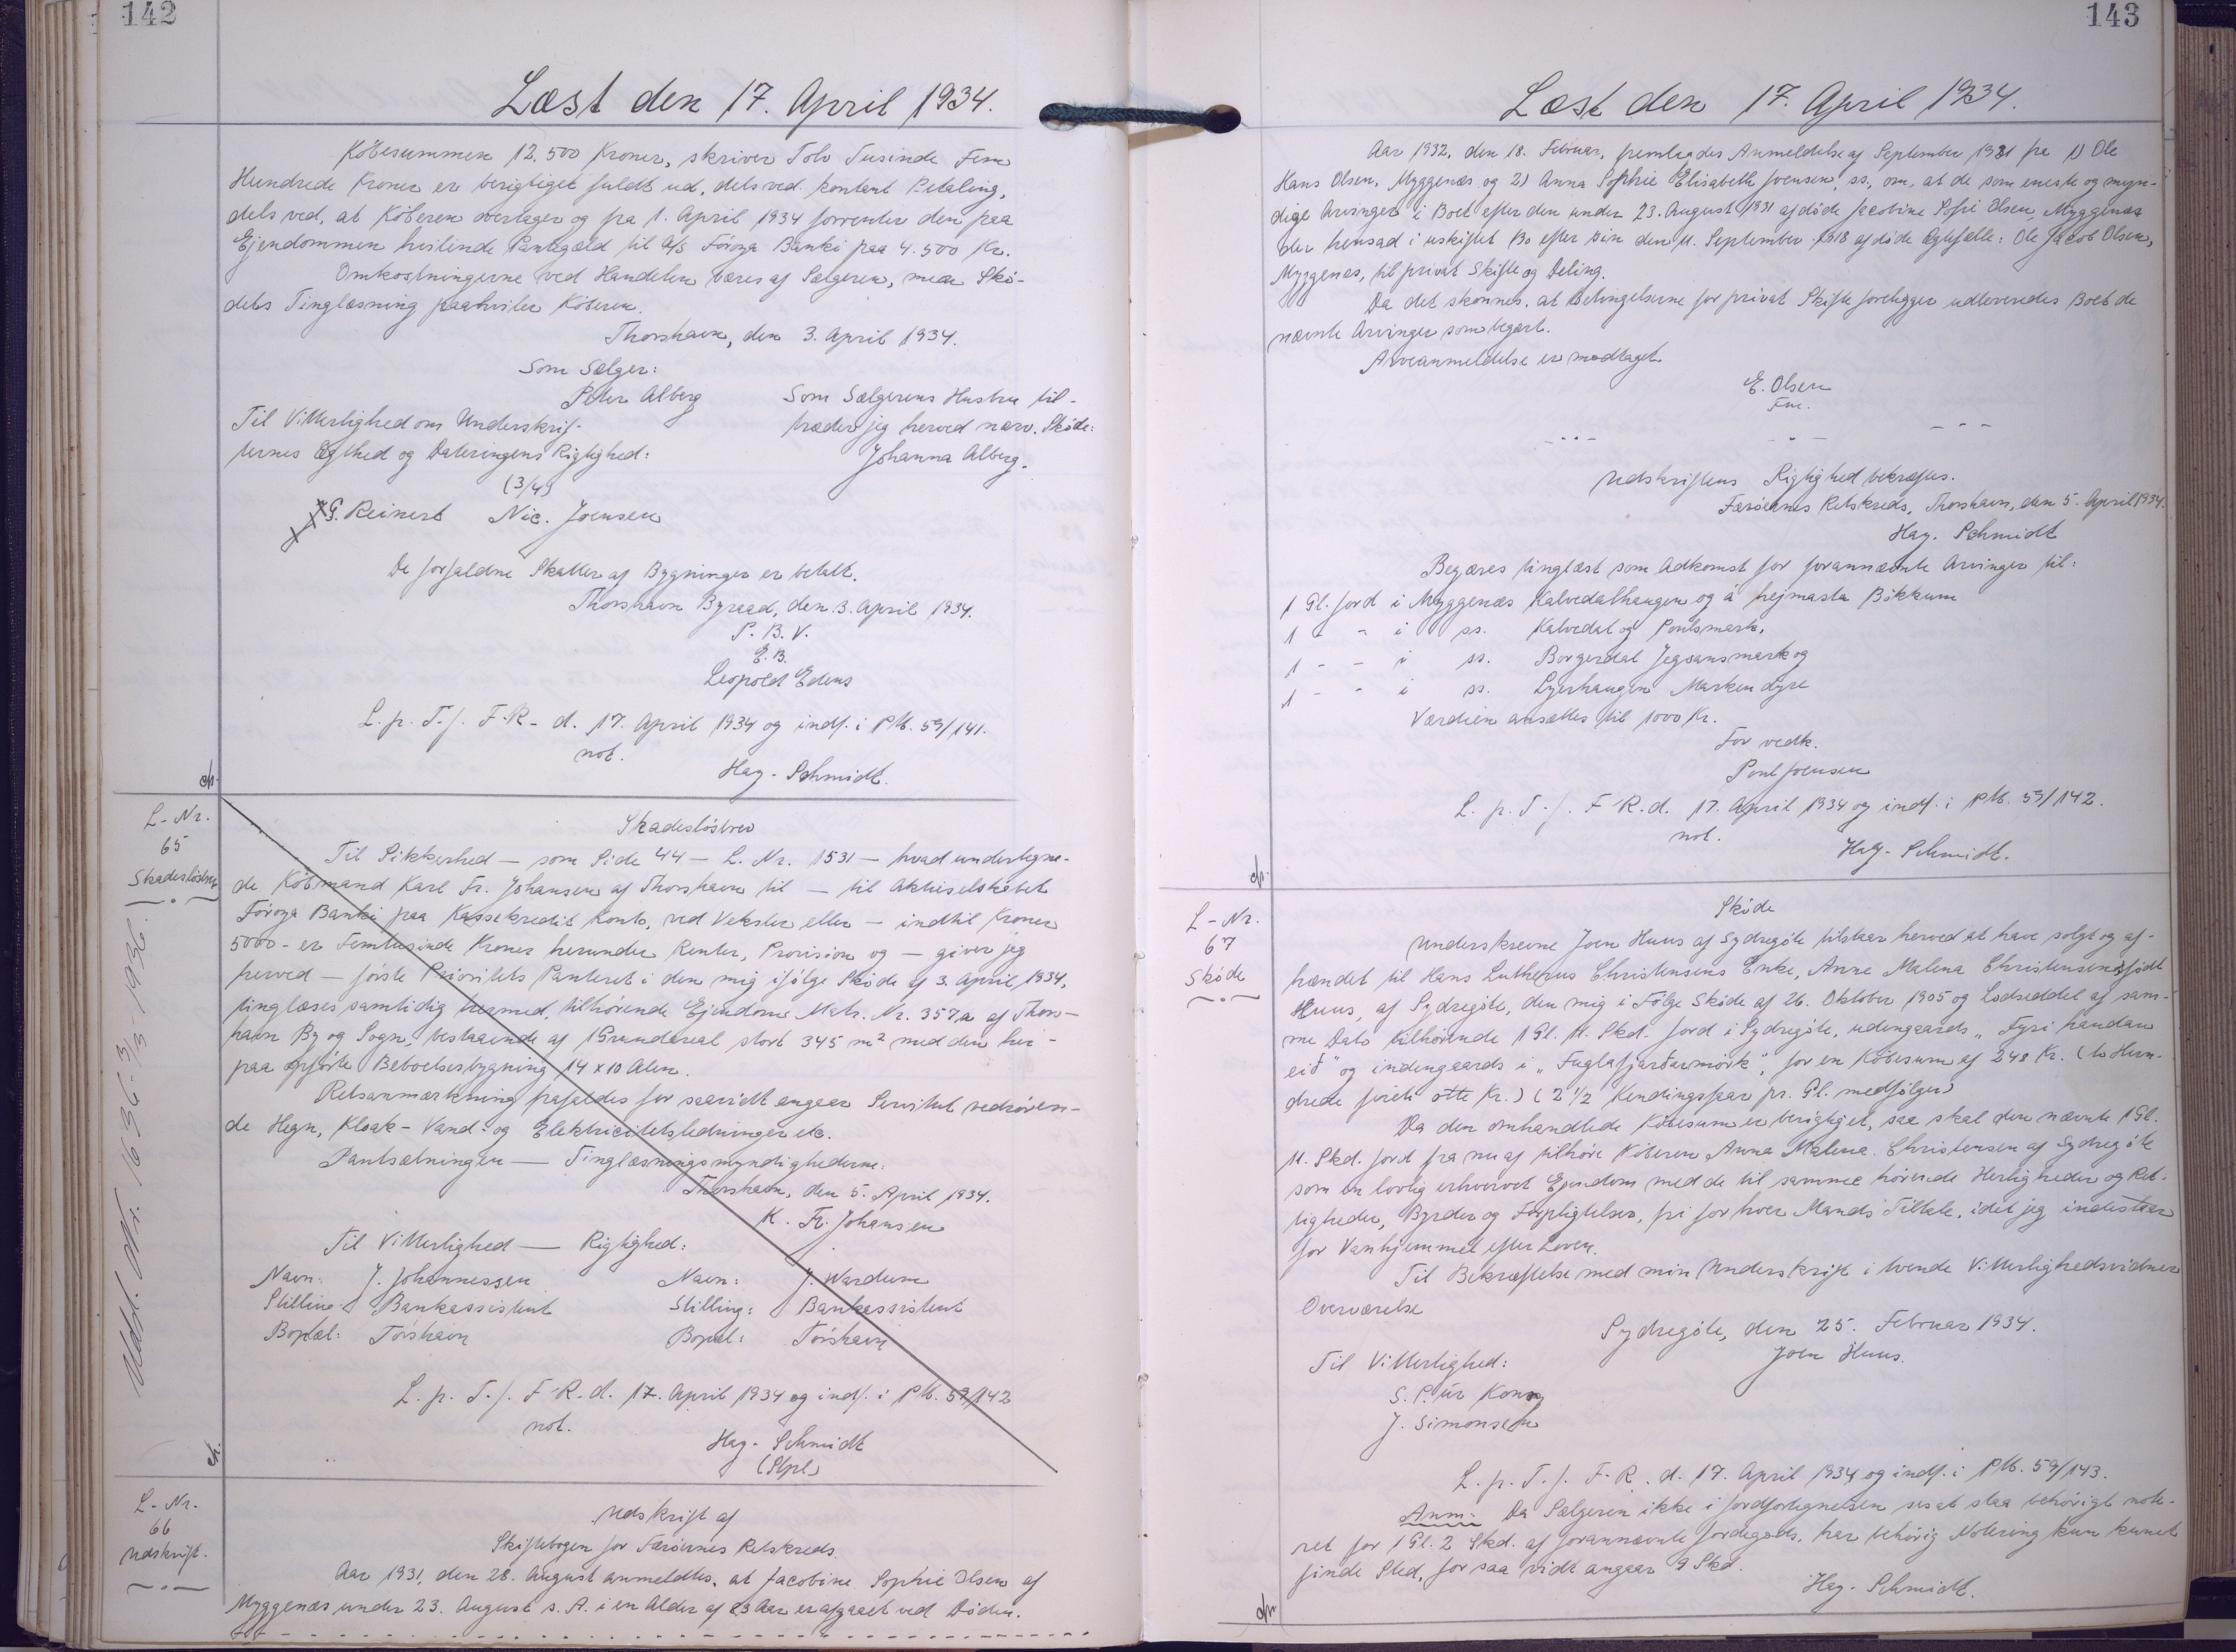 142
Læst den 17. April 1934.
Købesummen 12.500 Kroner, skriver Tolv Tusinde Fem
Hundrede Kroner er berigtiget fuldt ud, dels ved kontant Betaling,
dels ved, at Køberen overtager og fra 1. April 1934 forrenter den paa
Ejendommen hvilende Pantegæld til A/S Føroya Banki paa 4.500 Kr.
Omkostningerne ved Handelen bæres af Sælgeren, men Skø-
dets Tinglæsning paahviler Køberen.
Thorshavn, den 3. April 1934.
Som Sælger:
Peter Alberg
Som Sælgerens Hustru til-
træder jeg herved nærv. Skøde:
Johanna Alberg.
Til Vitterlighed om Underskrif-
ternes Ægthed og Dateringens Rigtighed:
(3/4)
G. Reinert Nic. Joensen
De forfaldne Skatter af Bygninger er betalt.
Thorshavn Byraad, den 3. April 1934.
P. B. V.
E. B.
Leopold Edens
L. p. T. f. F. R. d. 17. April 1934 og indf. i PM. 59/141.
not.
Hag. Schmidt.
L-Nr.
65
Skadesløsbrev
Udsl. Nr. 1696-3/3-1936.
Skadesløsbrev
Til Sikkerhed — som Side 44 — L. Nr. 1531 — hvad undertegne-
de Købmand Karl Fr. Johansen af Thorshavn til — til Aktieselskabet
Føroya Banki paa Kassekredit Konto, ved Veksler eller — indtil Kroner
5000 - er Femtusinde Kroner herunder Renter, Provision og — giver jeg
herved — første Prioritets Panteret i den mig ifølge Skøde af 3. April 1934,
tinglæses samtidig hermed, tilhørende Ejendom Matr. Nr. 357a af Thors-
havn By og Sogn, bestaaende af 1 Grundareal stort 345 m² med den her-
paa opførte Beboelsesbygning 14 x 10 Alen.
Retsanmærkning frafaldes for saavidt angaar Servitut vedrøren-
de Hegn, Kloak- Vand- og Elektricitetsledninger etc.
Pantsætningen — Tinglæsningsmyndighederne.
Thorshavn, den 5. April 1934.
K. Fr. Johansen
Til Vitterlighed — Rigtighed:
Navn: J. Johannessen Navn: J. Wardum
Stilling: Bankassistent Stilling: Bankassistent
Bopæl: Tórshavn Bopæl: Tórshavn
L. p. T. f. F. R. d. 17. April 1934 og indf. i PM. 59/142
not.
Hag. Schmidt
(Stpl)
L-Nr.
66
Udskrift.
Udskrift af
Skiftebogen for Færøernes Retskreds.
Aar 1931, den 28. August anmeldtes, at Jacobine Sophie Olsen af
Myggenæs under 23. August s. A. i en Alder af 83 Aar er afgaaet ved Døden.
143
Læst den 17. April 1934.
Aar 1932, den 18. Februar, fremlagdes Anmeldelse af September 1931 fra 1) Ole
Hans Olsen, Myggenæs og 2) Anna Sophie Elisabeth Joensen, ss., om, at de som eneste og myn-
dige Arvinger i Boet efter den under 23. August 1931 afdøde Jacobine Sofie Olsen, Myggenæs
der hensad i uskiftet Bo efter sin den 11. September 1918 afdøde Ægtefælle: Ole Jacob Olsen,
Myggenæs, til privat Skifte og Deling.
Da det skønnes, at Betingelserne for privat Skifte foreligger udleveredes Boet de
nævnte Arvinger som begært.
Arveanmeldelse er modtaget.
E. Olsen
Fm.
Udskriftens Rigtighed bekræftes.
Færøernes Retskreds, Thorshavn, den 5. April 1934.
Hag. Schmidt
Begæres tinglæst som Adkomst for forannævnte Arvinger til:
1 Gl. Jord i Myggenæs Kalvedalhaugen og á hejmasta Bökkum
1 - - i ss. Kalvedal og Poulsmark,
1 - - i ss. Borgerdal Jegvansmark og
1 - - i ss. Lyerhaugen Marken dyre
Værdien ansættes til 1000 Kr.
For vedk.
Poul Joensen
L. p. T. f. F. R. d. 17. April 1934 og indf. i PM. 59/142.
not.
Hag. Schmidt.
L-Nr.
67
Skøde
Skøde
Underskrevne Joen Huus af Sydregøte tilstaar herved at have solgt og af-
hændet til Hans Lutherus Christensens Enke, Anne Malena Christensen, født
Huus, af Sydregøte, den mig i Følge Skøde af 26. Oktober 1905 og Lodseddel af sam-
me Dato tilhørende 1 Gl. 11. Skd. Jord i Sydregøte, udengaards "Fyri handan
eið" og indengaards i "Fuglafjarðarmörk", for en Købesum af 248 Kr. (to Hun-
drede fireti otte Kr.) (2 1/2 Kendingsfaar pr. Gl. medfølger)
Da den omhandlede Købesum er berigtiget, saa skal den nævnte 1 Gl.
11. Skd. Jord fra nu af tilhøre Køberen Anna Malena Christensen af Sydregøte
som en lovlig erhvervet Ejendom med de til samme hørende Herligheder og Ret-
tigheder, Byrder og Forpligtelser, fri for hver Mands Tiltale, idet jeg indestaar
for Vanhjemmel efter Loven.
Til Bekræftelse med min Underskrift i tvende Vitterlighedsvidner
Overværelse
Sydregøte, den 25. Februar 1934.
Joen Huus.
Til Vitterlighed:
S. P. úr Konoy
J. Simonsen
L. p. T. f. F. R. d. 17. April 1934 og indf. i PM. 59/143.
Anm: Da Sælgeren ikke i Jordfortegnelsen ses at staa behørigt note-
ret for 1 Gl. 2 Skd. af forannævnte Jordegods, har behørig Notering kun kunnet
finde Sted, for saa vidt angaar 9 Skd.
Hag. Schmidt.